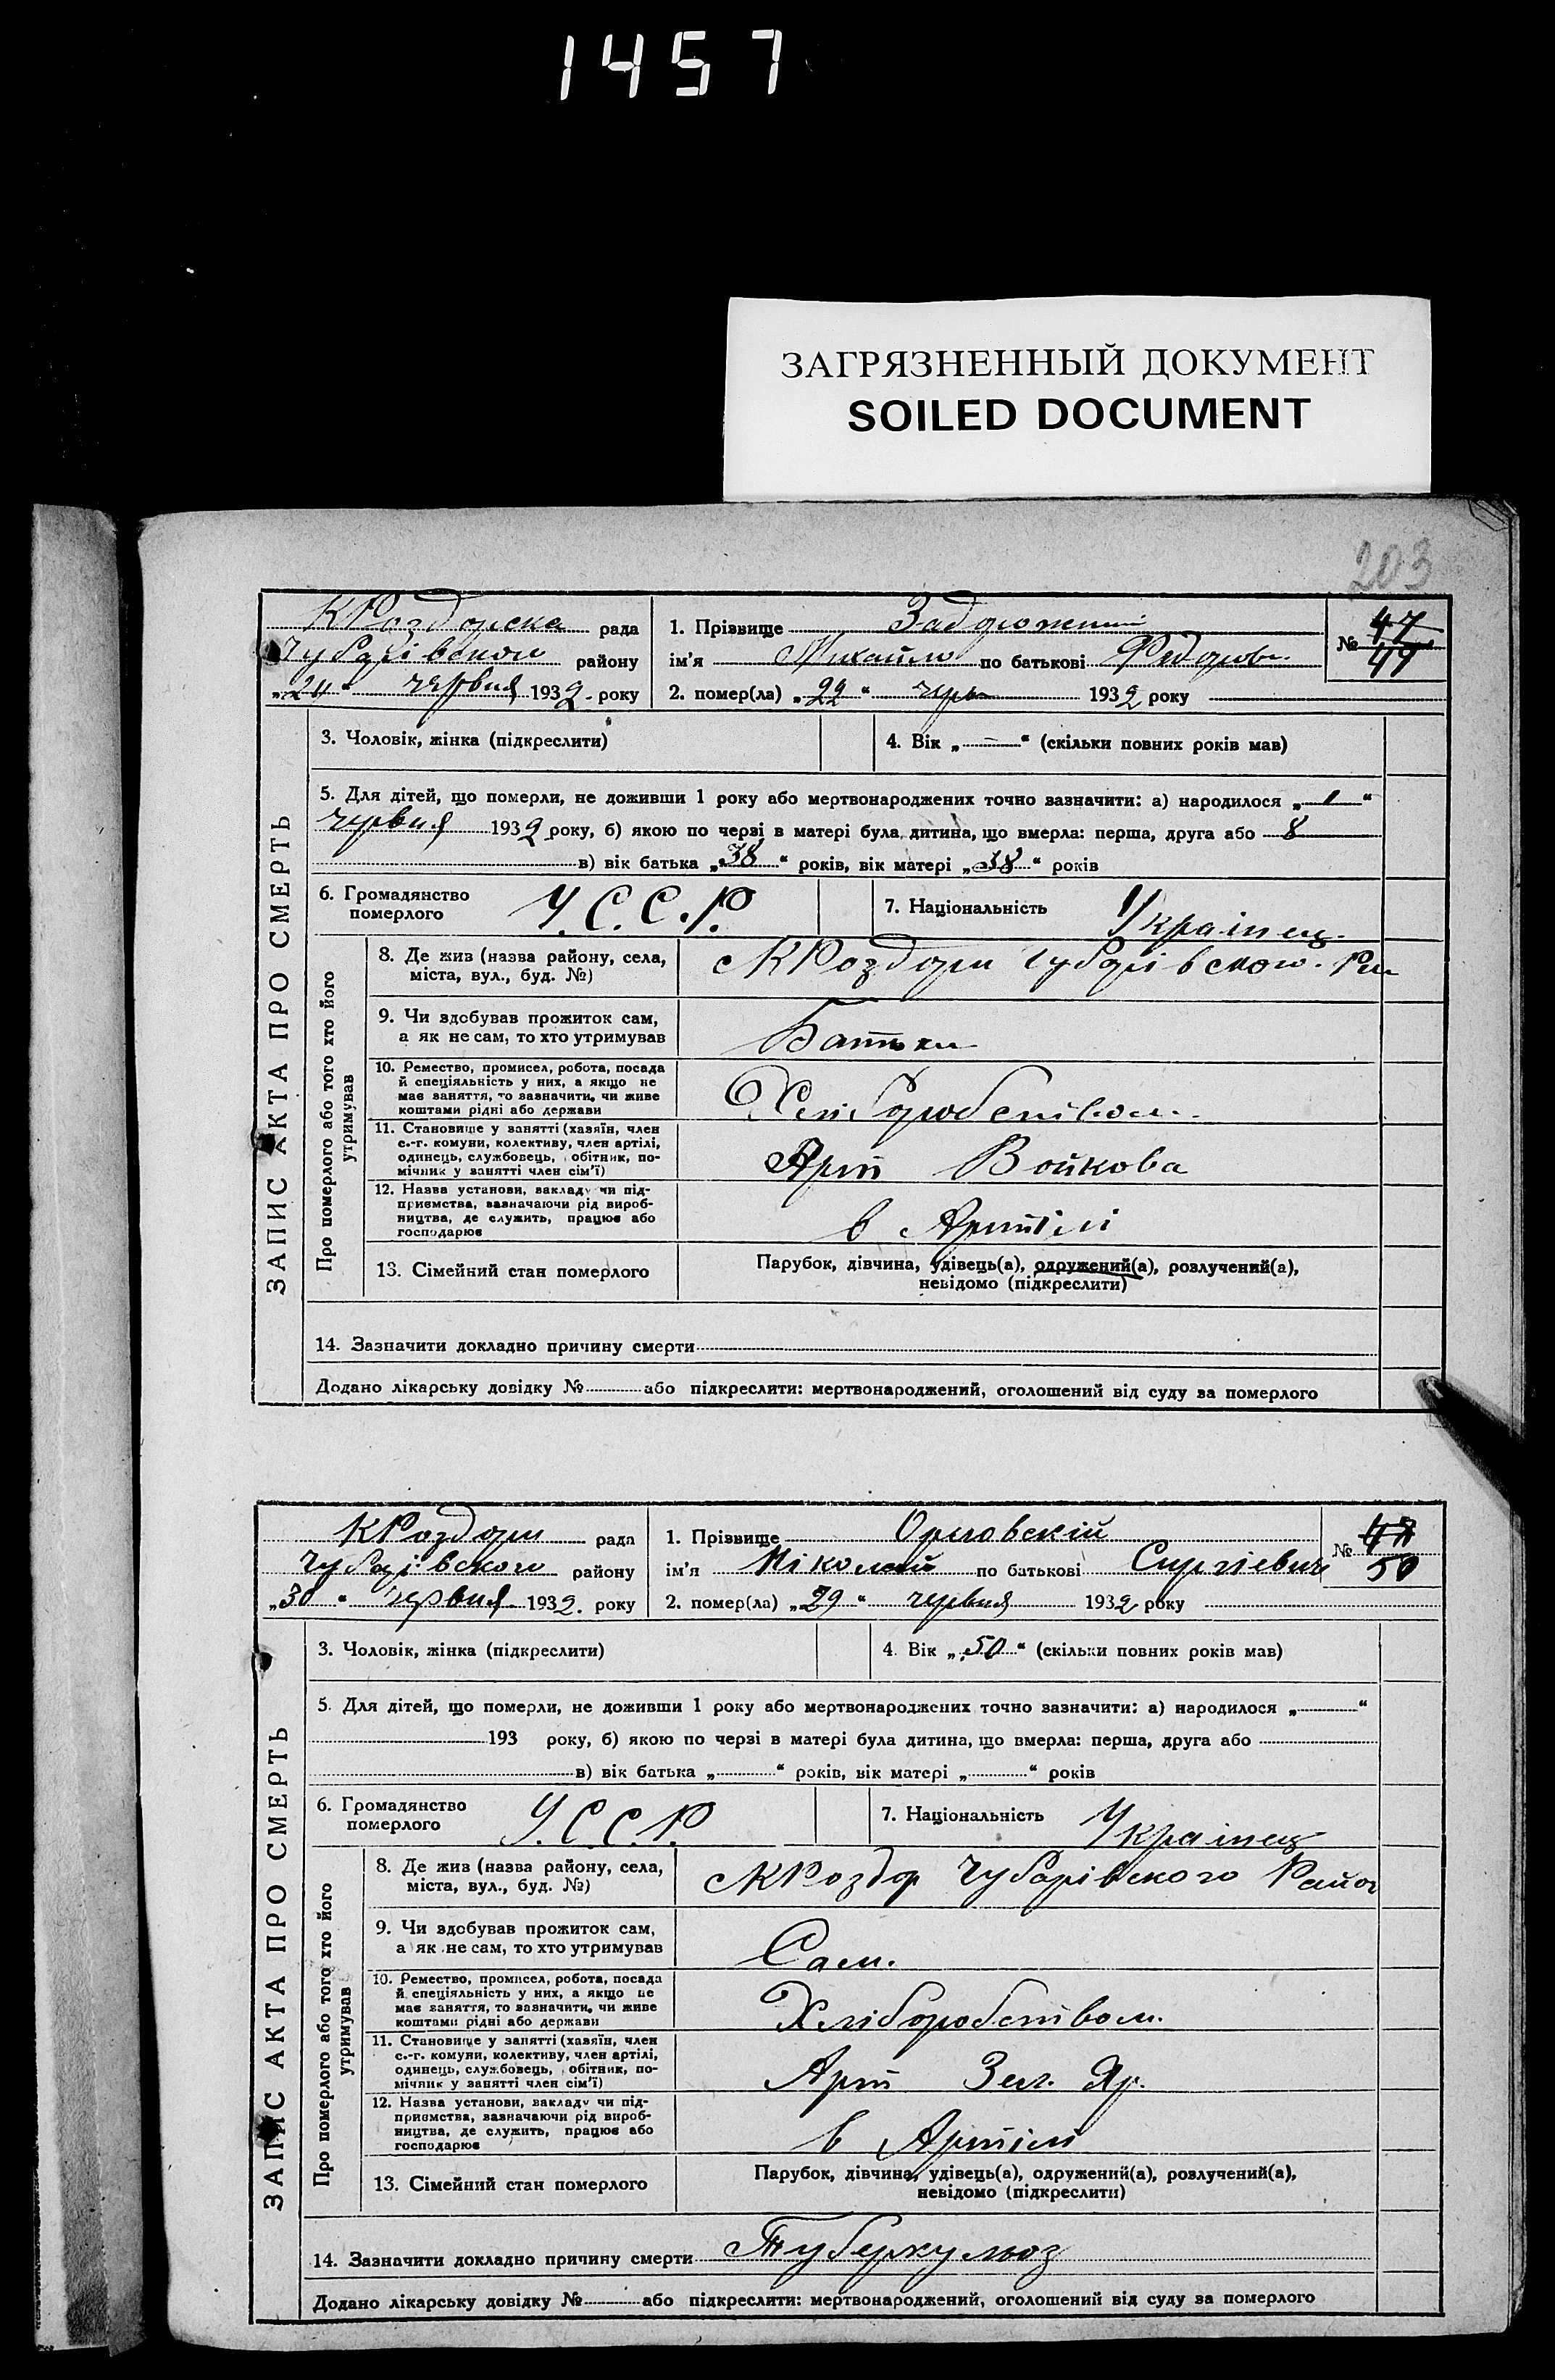 1457
ЗАГРЯЗНЕННЫЙ ДОКУМЕНТ
SOILED DOCUMENT
203
ЗАПИС АКТА ПРО СМЕРТЬ
КРоздорска рада
Чубарівского району
„24“ червня 1932. року
1. Прізвище Задорожний
ім'я Михайло по батькові Федорови
№ 47
49
2. помер(ла) „22“ черв 1932 року
3. Чоловік, жінка (підкреслити)
4. Вік „—“ (скільки повних років мав)
5. Для дітей, що померли, не доживши 1 року або мертвонароджених точно зазначити: а) народилося „1“
червня 1932 року, б) якою по черзі в матері була дитина, що вмерла: перша, друга або 8
в) вік батька „38“ років, вік матері „38“ років
6. Громадянство
померлого
У.С.С.Р.
7. Національність Українец.
Про померлого або того хто його
утримував
8. Де жив (назва району, села,
міста, вул., буд. №)
с КРоздори Чубарівского
9. Чи здобував прожиток сам,
а як не сам, то хто утримував
Батьки
10. Ремество, промисел, робота, посада
й спеціяльність у них, а якщо не
має заняття, то зазначити, чи живе
коштами рідні або держави
Хліборобством.
11. Становище у занятті (хазяїн, член
с.-г. комуни, колективу, член артілі,
одинець, службовець, обітник, по-
мічник у занятті член сім'ї)
Арт Войкова
12. Назва установи, закладу чи під-
приємства, зазначаючи рід вироб-
ництва, де служить, працює або
господарює
в Артілі
13. Сімейний стан померлого
Парубок, дівчина, удівець(а), одружений(а), розлучений(а),
невідомо (підкреслити)
14. Зазначити докладно причину смерти
Додано лікарську довідку № або підкреслити: мертвонароджений, оголошений від суду за померлого
ЗАПИС АКТА ПРО СМЕРТЬ
КРоздори рада
Чубарівского району
„30“ червня 1932. року
1. Прізвище Орловскій
ім'я Ніколай по батькові Сиргіевич
№ 50
2. помер(ла) „29“ червня 1932 року
3. Чоловік, жінка (підкреслити)
4. Вік „50“ (скільки повних років мав)
5. Для дітей, що померли, не доживши 1 року або мертвонароджених точно зазначити: а) народилося „ “
193 року, б) якою по черзі в матері була дитина, що вмерла: перша, друга або
в) вік батька „ “ років, вік матері „ “ років
6. Громадянство
померлого
У.С.С.Р.
7. Національність Українец
Про померлого або того хто його
утримував
8. Де жив (назва району, села,
міста, вул., буд. №)
с КРоздор Чубарівского Район
9. Чи здобував прожиток сам,
а як не сам, то хто утримував
Сам.
10. Ремество, промисел, робота, посада
й спеціяльність у них, а якщо не
має заняття, то зазначити, чи живе
коштами рідні або держави
Хліборобством.
11. Становище у занятті (хазяїн, член
с.-г. комуни, колективу, член артілі,
одинець, службовець, обітник, по-
мічник у занятті член сім'ї)
Арт Зел. Яр.
12. Назва установи, закладу чи під-
приємства, зазначаючи рід вироб-
ництва, де служить, працює або
господарює
в Артілі
13. Сімейний стан померлого
Парубок, дівчина, удівець(а), одружений(а), розлучений(а),
невідомо (підкреслити)
14. Зазначити докладно причину смерти Туберкульоз
Додано лікарську довідку № або підкреслити: мертвонароджений, оголошений від суду за померлого